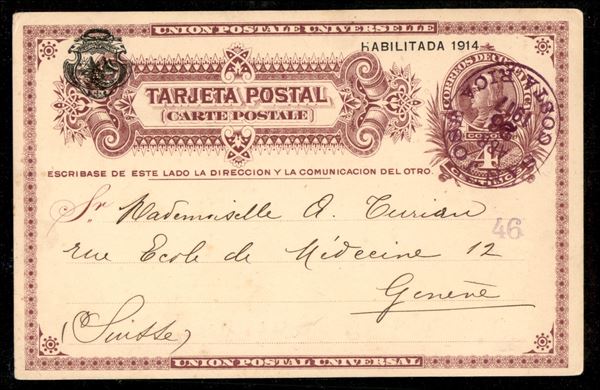 UNION POSTALE UNIVERSELLE
HABILITADA 1914
TARJETA POSTAL
(CARTE POSTALE)
ESCRIBASE DE ESTE LADO LA DIRECCION Y LA COMUNICACION DEL OTRO.
CORREOS DE
4
SAN JOSE COSTA RICA
1917
46
Sr. Mademoiselle A. Turian
rue Ecole de Médecine 12
Genève
(Suisse)
UNION POSTAL UNIVERSAL